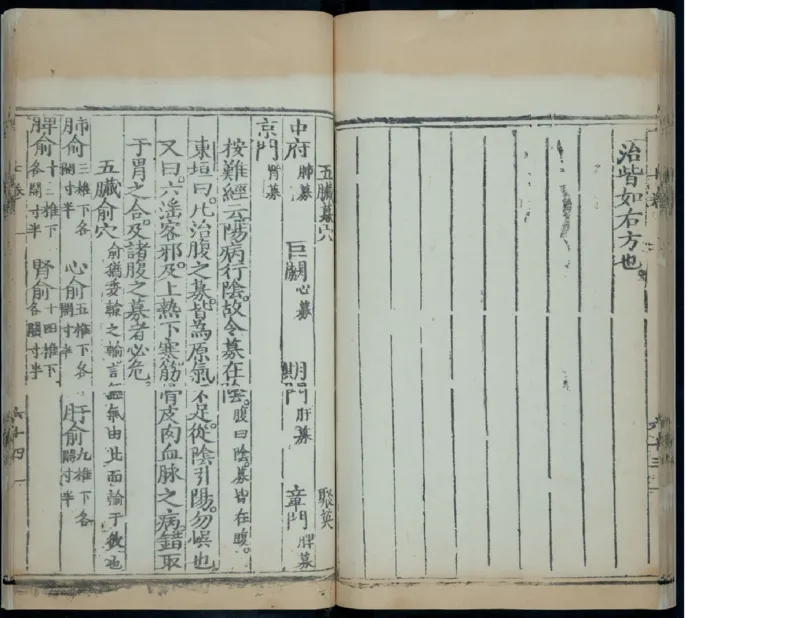 治皆如右方也
五臟募穴 聚英
中府肺募 巨闕心募 期門肝募 章門脾募
京門腎募
按難經云陽病行陰故令募在陰腹曰陰募皆在腹
東垣曰凡治腹之募皆為原氣不足從陰引陽勿悞也
又曰六滛客邪及上熱下寒筋骨皮肉血脉之病錯取
于胃之合及諸腹之募者必危
五臟俞穴俞猶委輸之輸言經氣由此而輸于彼也
肺俞三椎下各開寸半 心俞五椎下各開寸半 肝俞九椎下各開寸半
脾俞十一椎下各開寸半 腎俞十四椎下各開寸半
六十四